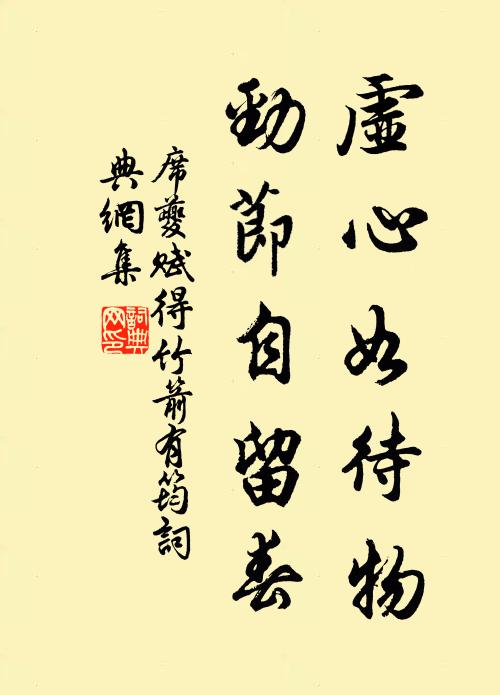 虛心如待物
勁節自留春
席夔賦得竹箭有筠詞
典網集
詞典網印